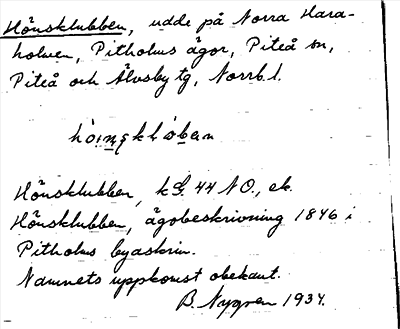 Hönsklubben, udde på Norra Hara-
holmen, Pitholms ägor, Piteå sn,
Piteå och Älvsby tg, Norrb. l.
Hönsklubben, kG. 44 NO., ek.
Hönsklubben, ägobeskrivning 1846 i
Pitholms byaskrin.
Namnets uppkomst obekant.
B. Nygren 1934.